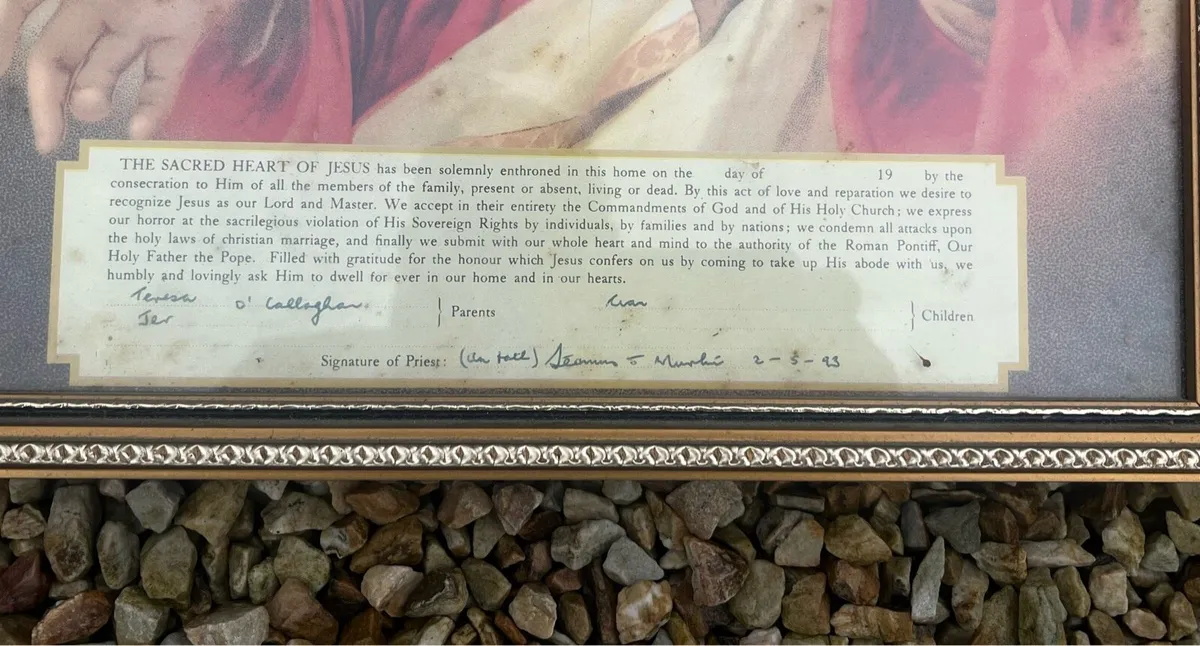 THE SACRED HEART OF JESUS has been solemnly enthroned in this home on the day of 19 by the
consecration to Him of all the members of the family, present or absent, living or dead. By this act of love and reparation we desire to
recognize Jesus as our Lord and Master. We accept in their entirety the Commandments of God and of His Holy Church; we express
our horror at the sacrilegious violation of His Sovereign Rights by individuals, by families and by nations; we condemn all attacks upon
the holy laws of christian marriage, and finally we submit with our whole heart and mind to the authority of the Roman Pontiff, Our
Holy Father the Pope. Filled with gratitude for the honour which Jesus confers on us by coming to take up His abode with us, we
humbly and lovingly ask Him to dwell for ever in our home and in our hearts.
Teresa O' Callaghan
Jer
Parents
Children
Signature of Priest: Seamus 2-5-93